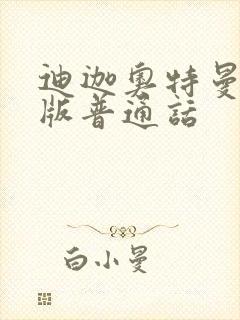 迪迦奥特曼
版普通話
白小曼